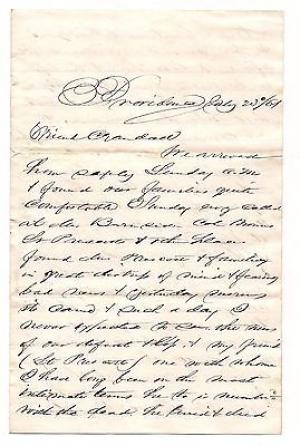 Providence July 23rd/61
Friend Crandall
We arrived
home safely Sunday a.m.
& found our families quite
comfortable Sunday evg called
at Mrs Burnside Col
Lt Prescotts & other places
found Mrs Prescott & family
in great distress of mind & fearing
bad news & yesterday morning
it came & such a day I
never expected to see. the news
of our defeat & my friend
(Lt Prescott) one with whom
I have long been on the most
intimate terms
with the dead.